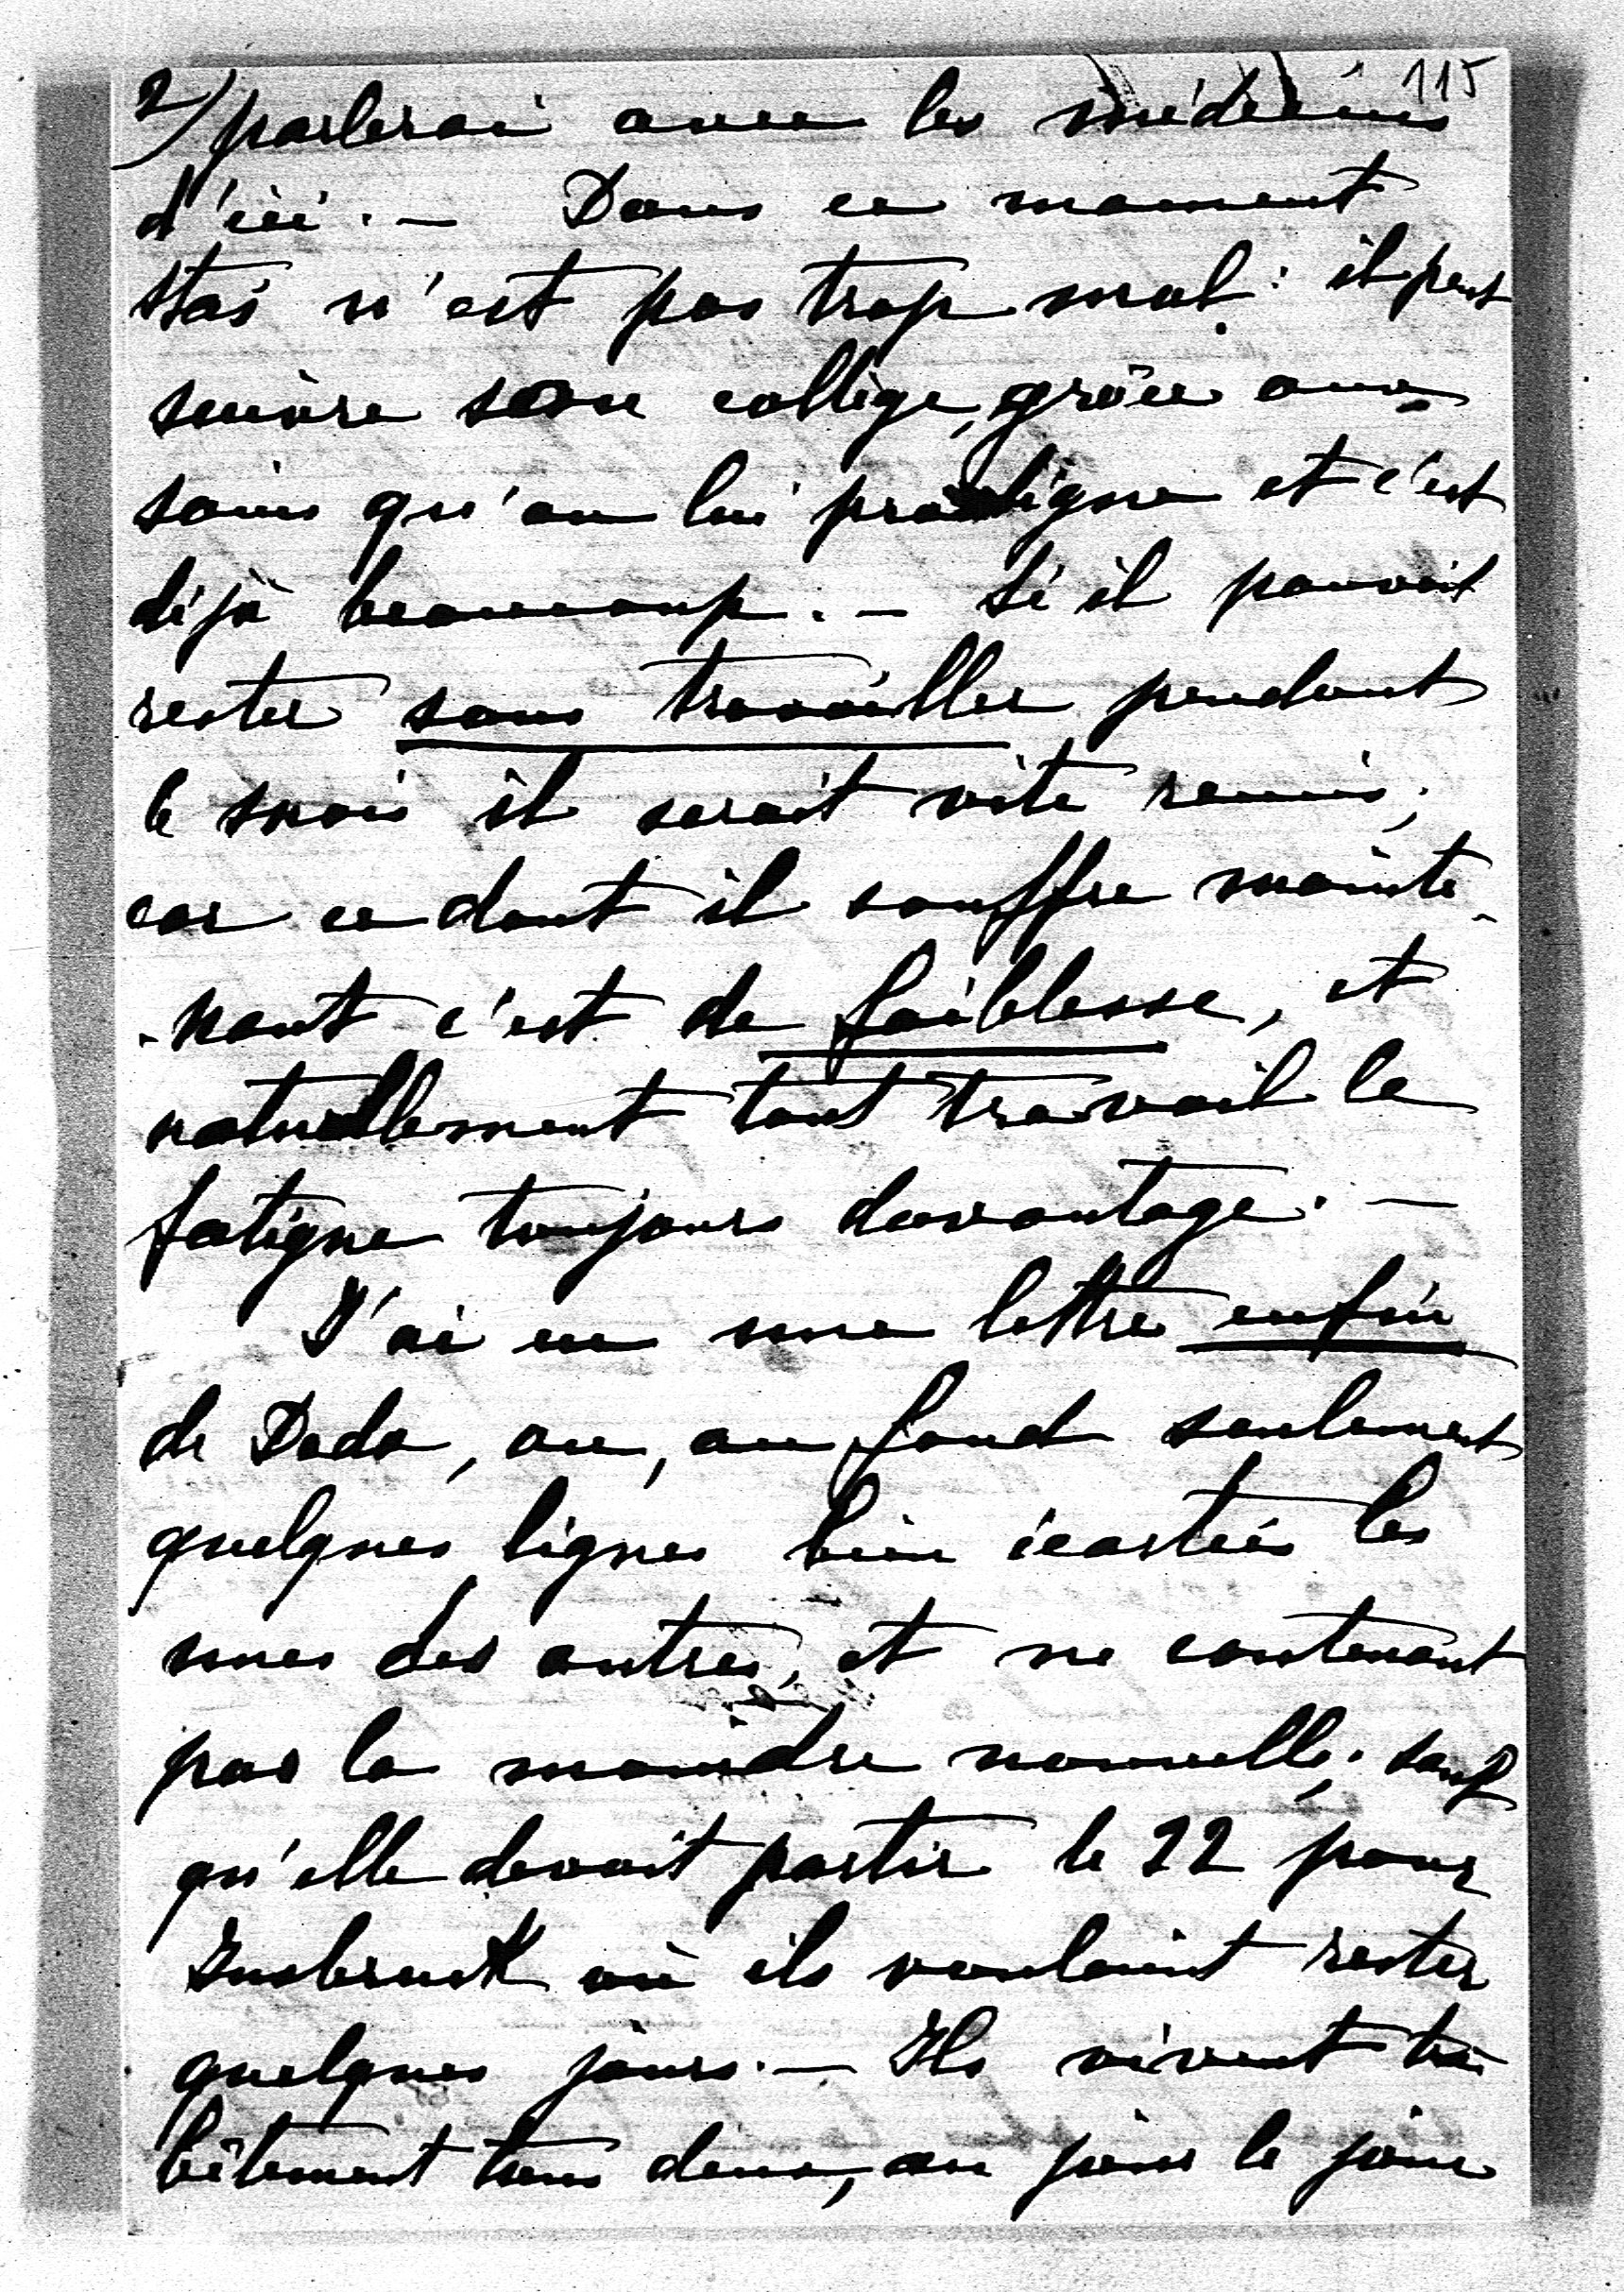 115
2/ parlerai avec les médecins
d'ici. — Dans ce moment
Stas n'est pas trop mal: il peut
suivre son collège, grâce aux
soins qu'on lui prodigue et c'est
déjà beaucoup. — Si il pouvait
rester sans travailler pendant
le mois il serait vite remis,
car ce dont il souffre mainte-
-nant c'est de faiblesse, et
naturellement tout travail le
fatigue toujours davantage. —
J'ai eu une lettre enfin
de Dada, ou, au fond seulement
quelques lignes bien écartées les
unes des autres, et ne contenant
pas la moindre nouvelle, sauf
qu'elle devait partir le 22 pour
Insbruck où ils voulaient rester
quelques jours. — Ils vivent très
bêtement tous deux, au jour le jour